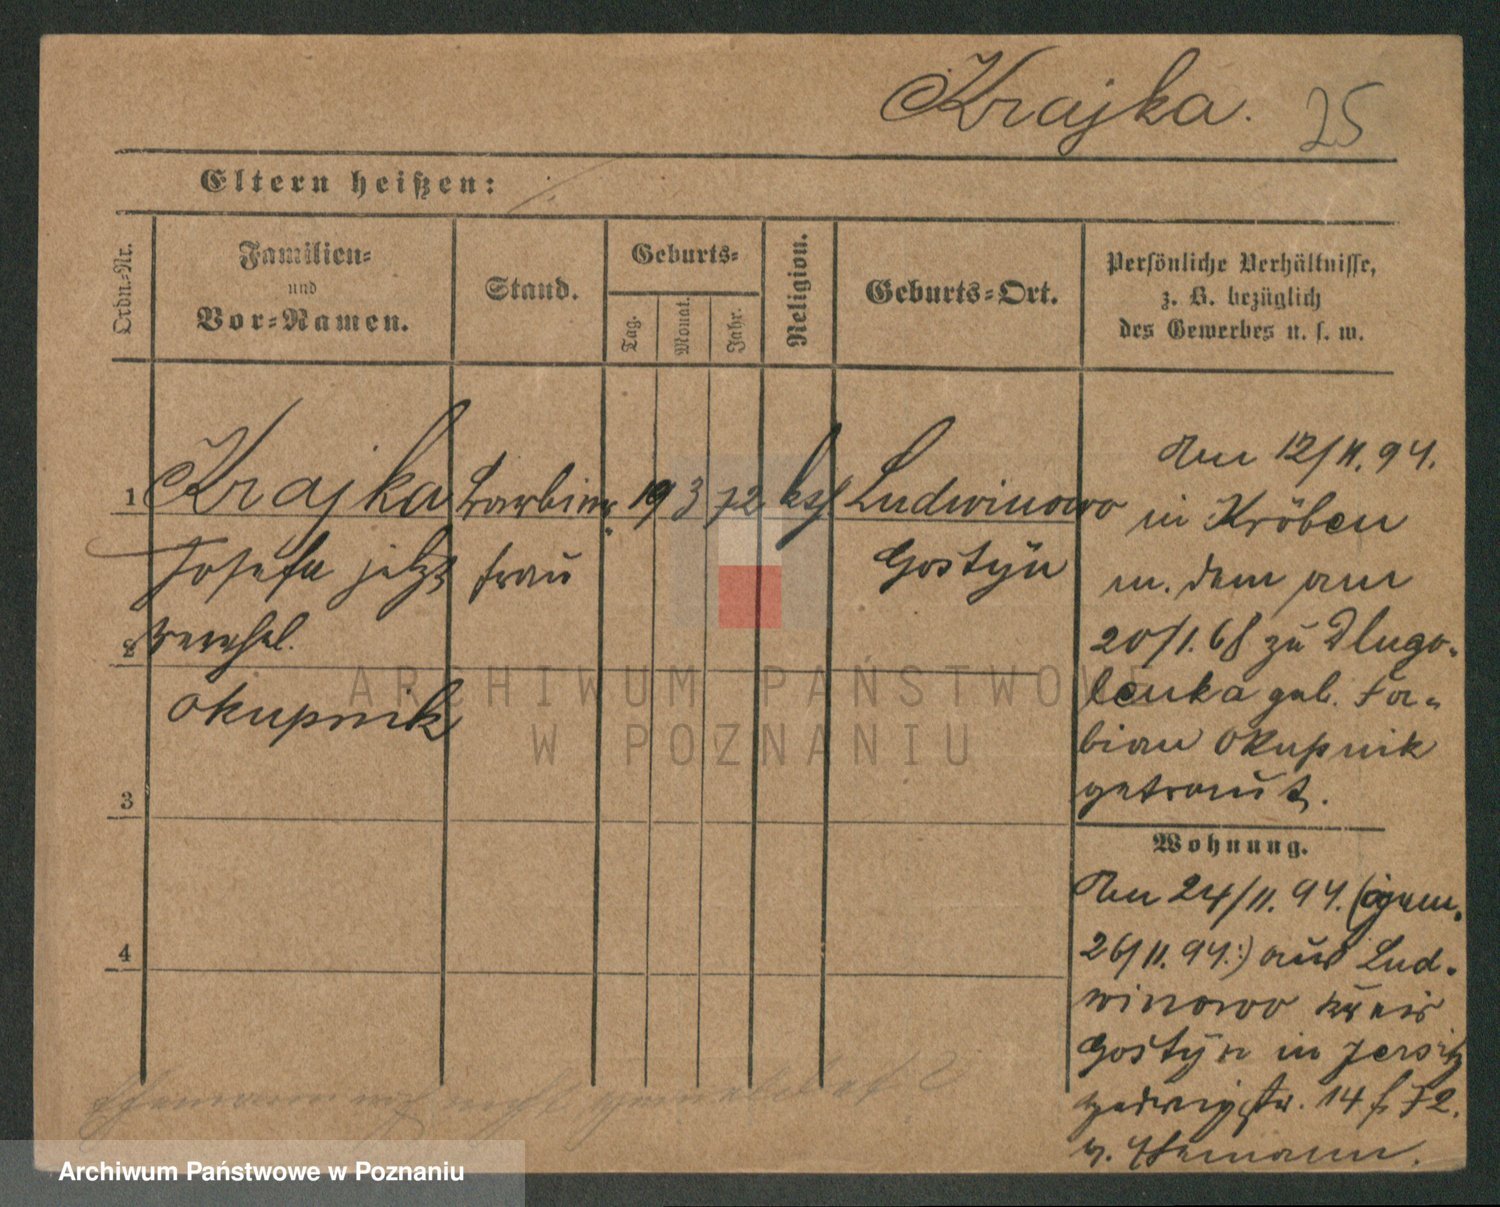 Krajka. 25
Eltern heißen:
Ordn.-Nr.
Familien-
und
Vor-Namen.
Stand.
Geburts-
Tag.
Monat.
Jahr.
Religion.
Geburts-Ort.
Persönliche Verhältnisse,
z. B. bezüglich
des Gewerbes u. s. w.
1 Krajka 19 3 72 kth Ludwinowo
Josefa jetzt frau Gostyn
2 verehel.
Okupnik
3
4
Den 12/11. 94.
in Kröben
m. dem am
20/1. 68 zu Dlugo-
lenka geb. Fa-
bian Okupnik
getraut.
Wohnung.
Den 24/11. 94. (:gem.
26/11. 94.:) aus Lud-
winowo Kreis
Gostyn in Jersitz
Hedwigstr. 14 72.
b. Ehemann.
Ehemann noch nicht gemeldet?
ARCHIWUM PAŃSTWOWE
W POZNANIU
Archiwum Państwowe w Poznaniu